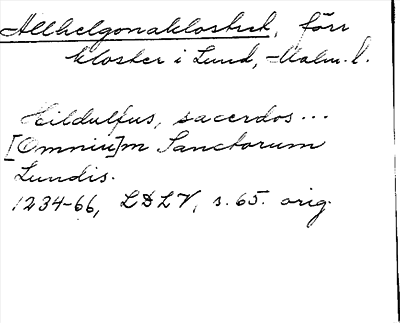 Allhelgonaklostret, förr
kloster i Lund, Malm. l.
Hildulfus, sacerdos...
[Omniu]m Sanctorum
Lundis.
1234-66, LDLV, s. 65. orig.